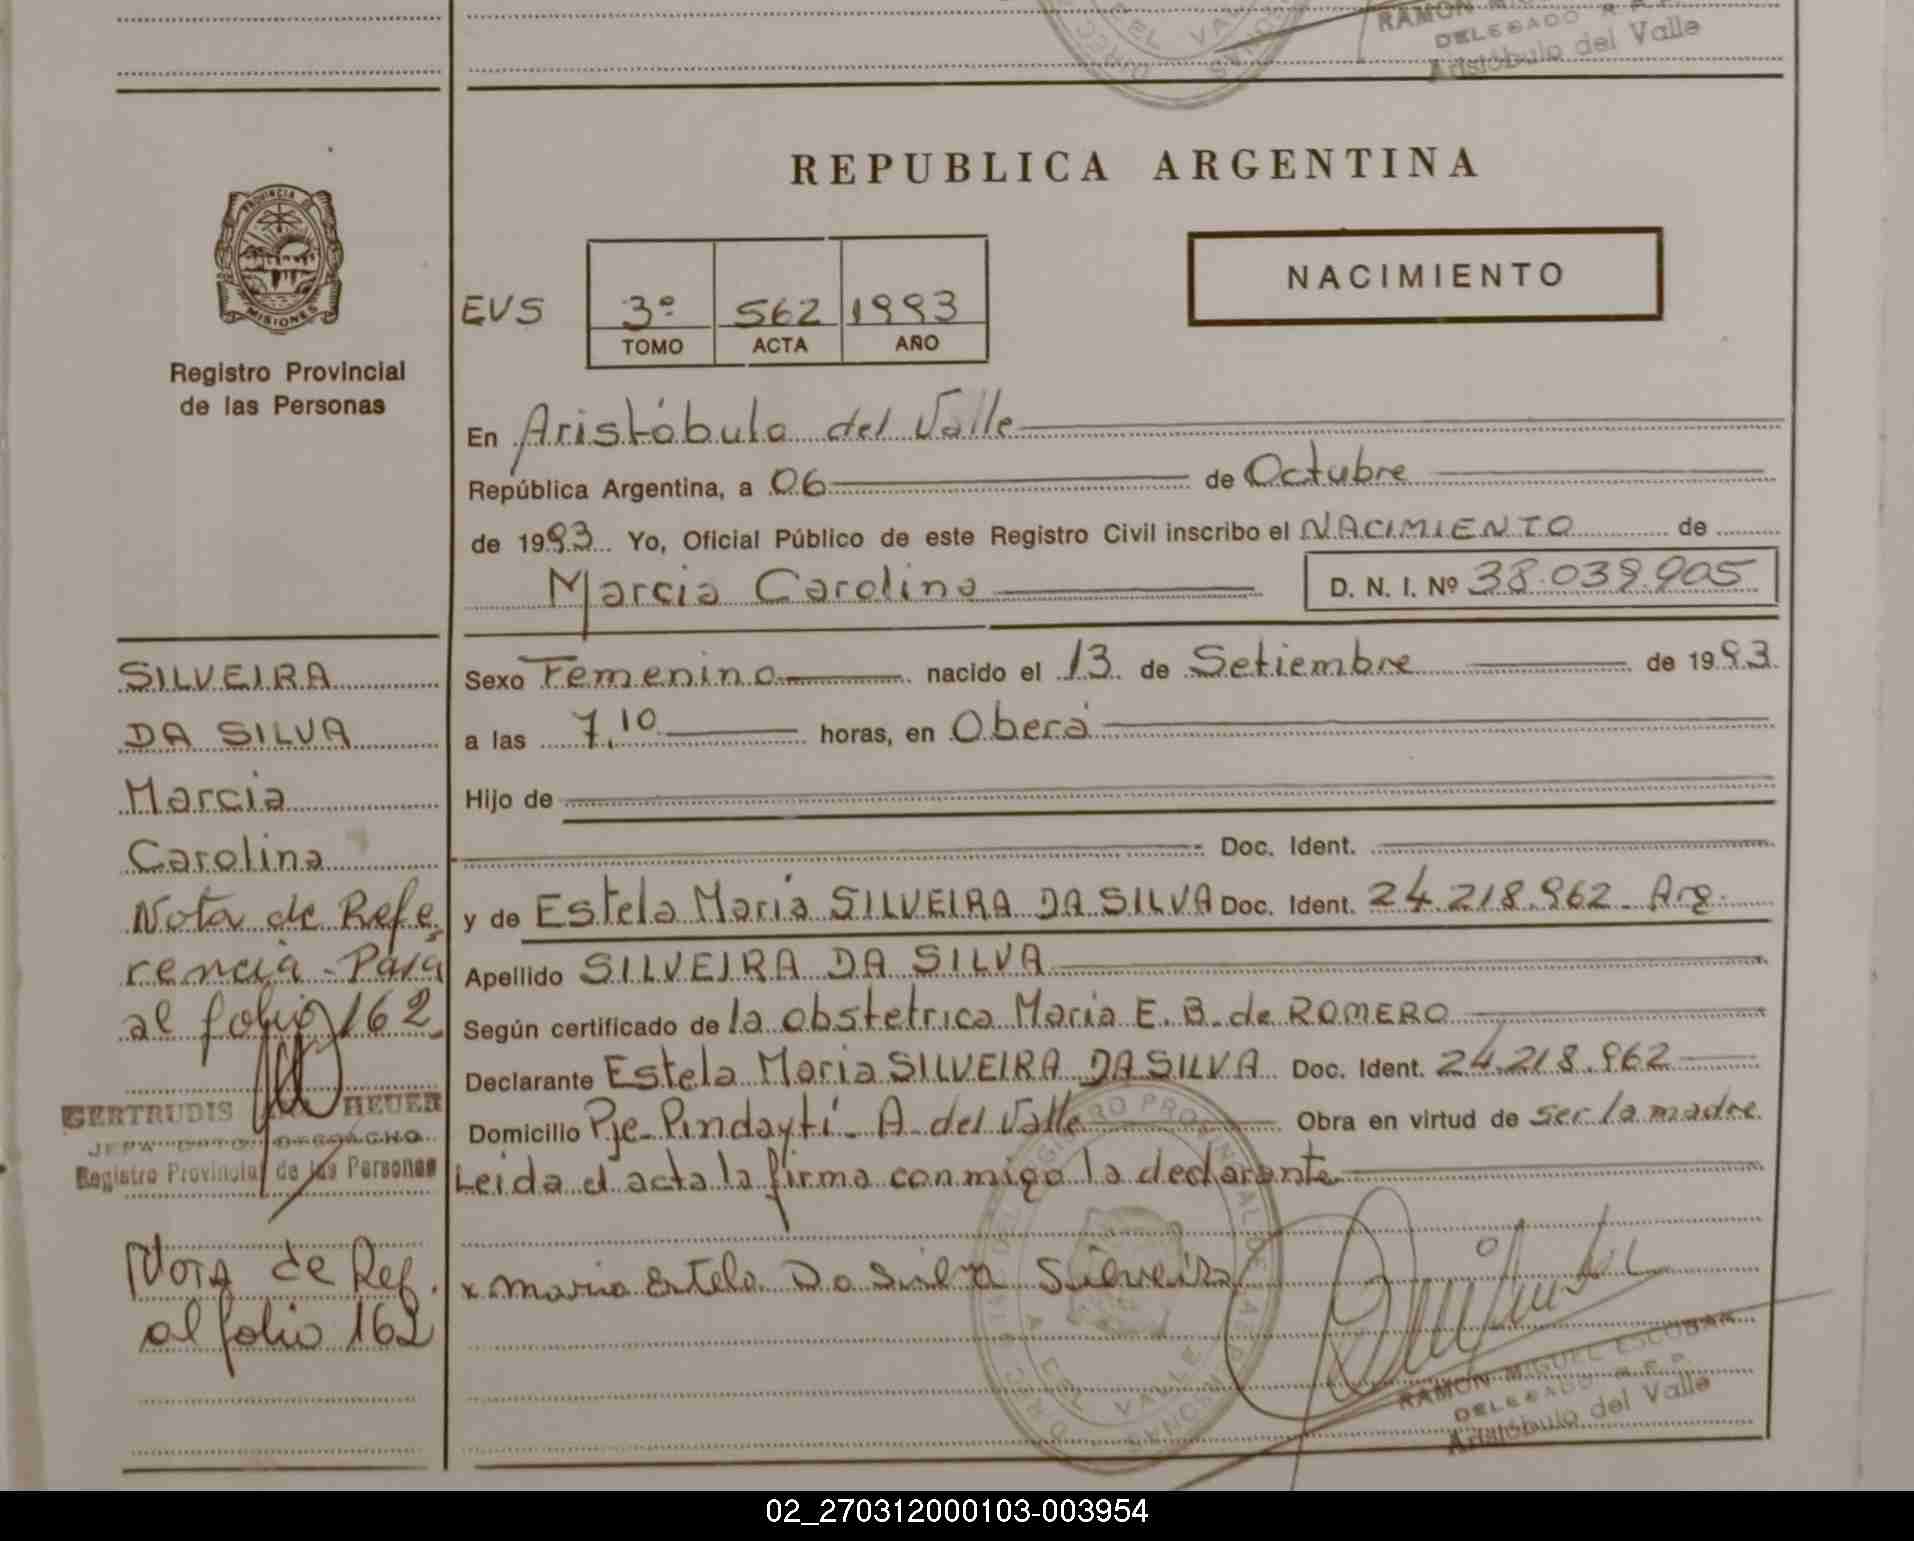 RAMON
DELEGADO R.P.
Aristóbulo del Valle
REPUBLICA ARGENTINA
PROVINCIA DE
MISIONES
Registro Provincial
de las Personas
NACIMIENTO
EVS 3º 562 1993
TOMO ACTA AÑO
En Aristóbulo del Valle
República Argentina, a 06 de Octubre
de 1993 Yo, Oficial Público de este Registro Civil inscribo el NACIMIENTO de
Marcia Carolina D. N. I. Nº 38.039.905
SILVEIRA
DA SILVA
Marcia
Carolina
Nota de Refe
rencia - Pasa
al folio 162
GERTRUDIS HEUER
JEFA DPTO. DESPACHO
Registro Provincial de las Personas
Nota de Ref.
al folio 162
Sexo Femenino nacido el 13 de Setiembre de 1993
a las 7,10 horas, en Oberá
Hijo de
Doc. Ident.
y de Estela Maria SILVEIRA DA SILVA Doc. Ident. 24.218.962 - Arg.
Apellido SILVEIRA DA SILVA
Según certificado de la obstetrica Maria E. B. de ROMERO
Declarante Estela Maria SILVEIRA DA SILVA Doc. Ident. 24.218.962
Domicilio Pje. Pindaytí - A. del Valle Obra en virtud de ser la madre
Leida el acta la firma conmigo la declarante
x Maria Estela Da Silva Silveira
RAMON MIGUEL ESCOBAR
DELEGADO R.P.
Aristóbulo del Valle
02_270312000103-003954